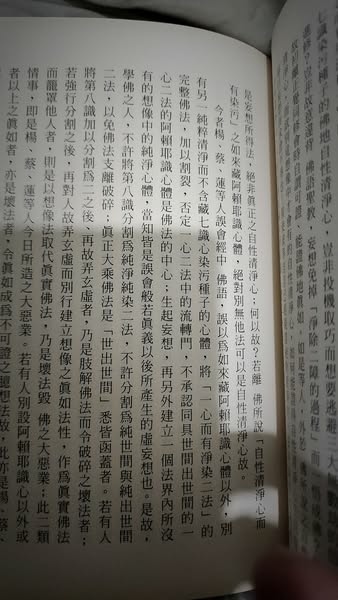 七識染污種
的佛地自性清淨心
豈非投機取巧而想要逃避
妄想免
除二障的過程
能證佛地眞如
是妄想所得法，絕非眞正之自性清淨心；何以故？若離 佛所說「自性清淨心而
有染污」之如來藏阿賴耶識心體，絕對別無他法可以是自性清淨心故。
今者楊、蔡、蓮等人誤會經中 佛語，誤以爲如來藏阿賴耶識心體以外，別
有另一純粹清淨而不含藏七識心染污種子的心體，將「一心而有淨染二法」的
完整佛法，加以割裂，否定一心二法中的流轉門，不承認同具世間出世間的一
心二法的阿賴耶識心體是佛法的中心；生起妄想，再另外建立一個法界內所沒
有的想像中的純淨心體，當知皆是誤會般若眞義以後所產生的虛妄想也。是故，
學佛之人，不許將第八識分割爲純淨純染二法，不許分割爲純世間與純出世間
二法，以免佛法支離破碎；眞正大乘佛法是「世出世間」悉皆函蓋者。若有人
將第八識加以分割爲二之後、再故弄玄虛者，乃是肢解佛法而令破碎之壞法者；
若強行分割之後，再對人故弄玄虛而別行建立想像之眞如法性，作爲眞實佛法
而籠罩他人者，則是以想像法取代眞實佛法，乃是壞法毀 佛之大惡業。此二類
情事，即是楊、蔡、蓮等人今日所造之大惡業。若有人別設阿賴耶識心以外或
者以上之眞如者，亦是壞法者，令眞如成爲不可證之臆想法故，此亦是楊、蔡、